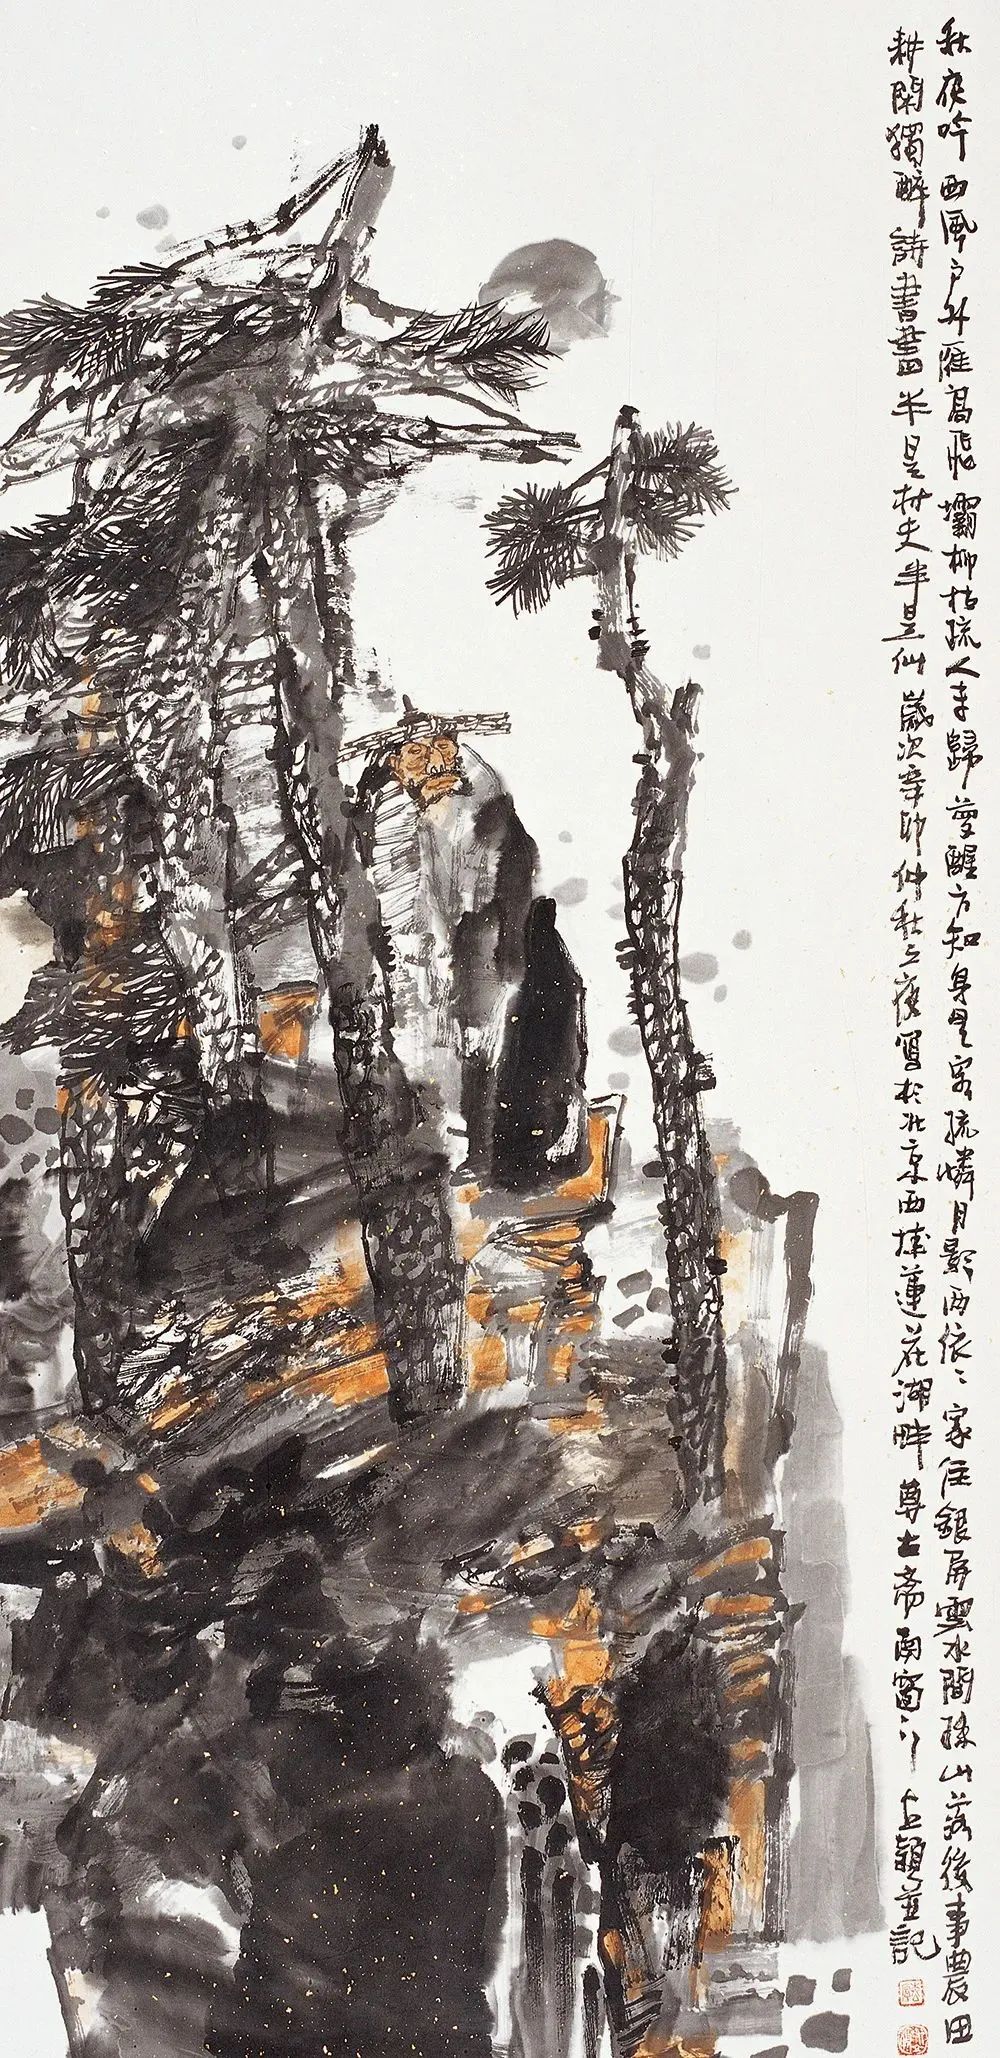 秋夜吟西風户外雁高飛壩柳枯疏人未歸夢醒方知身是客疏憐月影兩依〻家住銀屏雲水間珠山落後事農田
耕閑獨醉詩書畫半是村夫半是仙歲次辛卯仲秋之夜寫於北京西接蓮花湖畔尊古斋南窗下占領並記